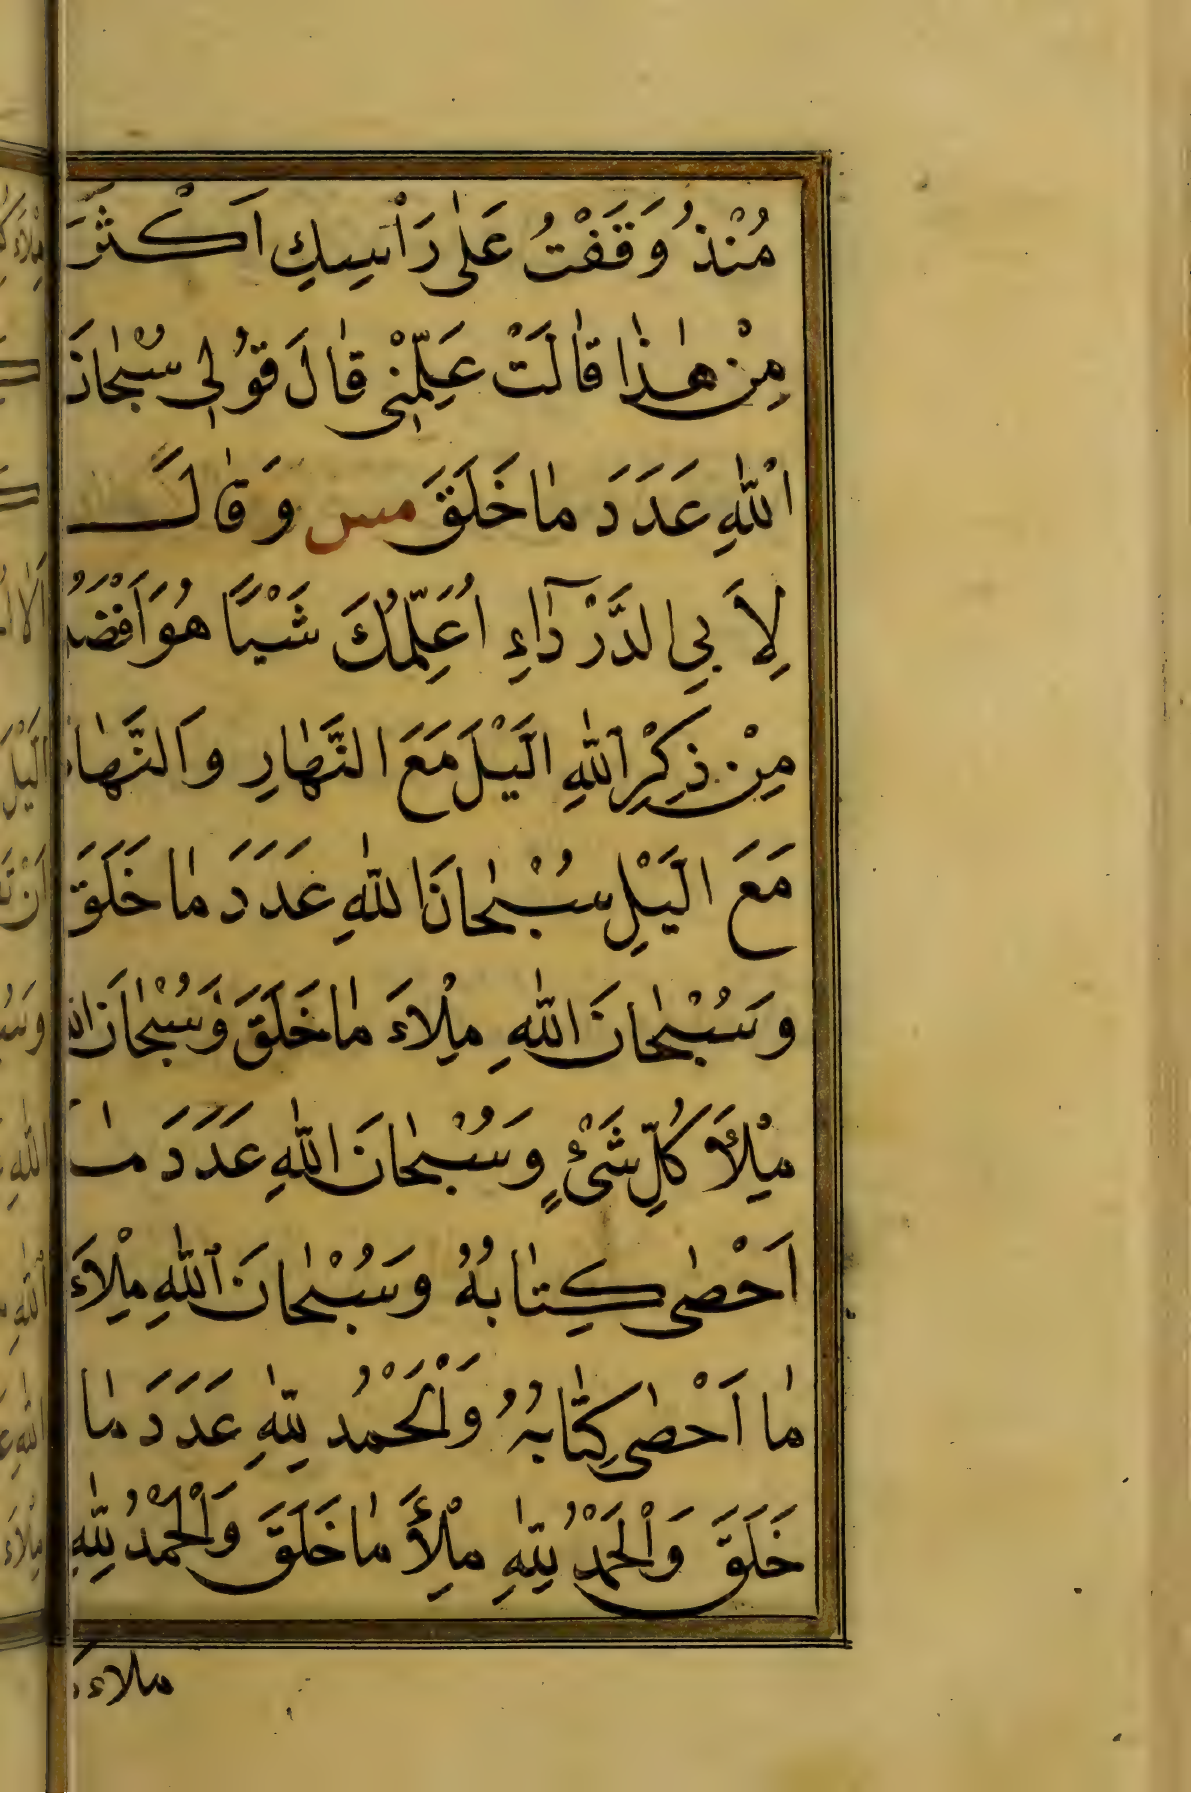 مُنْذُ وَقَفْتُ عَلٰى رَأْسِكِ اَكْثَرَ
مِنْ هٰذَا قَالَتْ عَلِّمْنِى قَالَ قُوْلِى سُبْحَانَ
اللّٰهِ عَدَدَ مَا خَلَقَ مس وَقَالَ
لِاَبِى الدَّرْدَآءِ اُعَلِّمُكَ شَيْئًا هُوَ اَفْضَلُ
مِنْ ذِكْرِ اللّٰهِ الَّيْلَ مَعَ النَّهَارِ وَالنَّهَارَ
مَعَ الَّيْلِ سُبْحَانَ اللّٰهِ عَدَدَ مَا خَلَقَ
وَسُبْحَانَ اللّٰهِ مِلْاءَ مَا خَلَقَ وَسُبْحَانَ اللّٰهِ
مِلْأَ كُلِّ شَئٍْ وَسُبْحَانَ اللّٰهِ عَدَدَ مَا
اَحْصٰى كِتَابُهُ وَسُبْحَانَ اللّٰهِ مِلْاءَ
مَا اَحْصٰى كِتَابُهُ وَالْحَمْدُ لِلّٰهِ عَدَدَ مَا
خَلَقَ وَالْحَمْدُ لِلّٰهِ مِلْأَ مَا خَلَقَ وَالْحَمْدُ لِلّٰهِ
ملاء